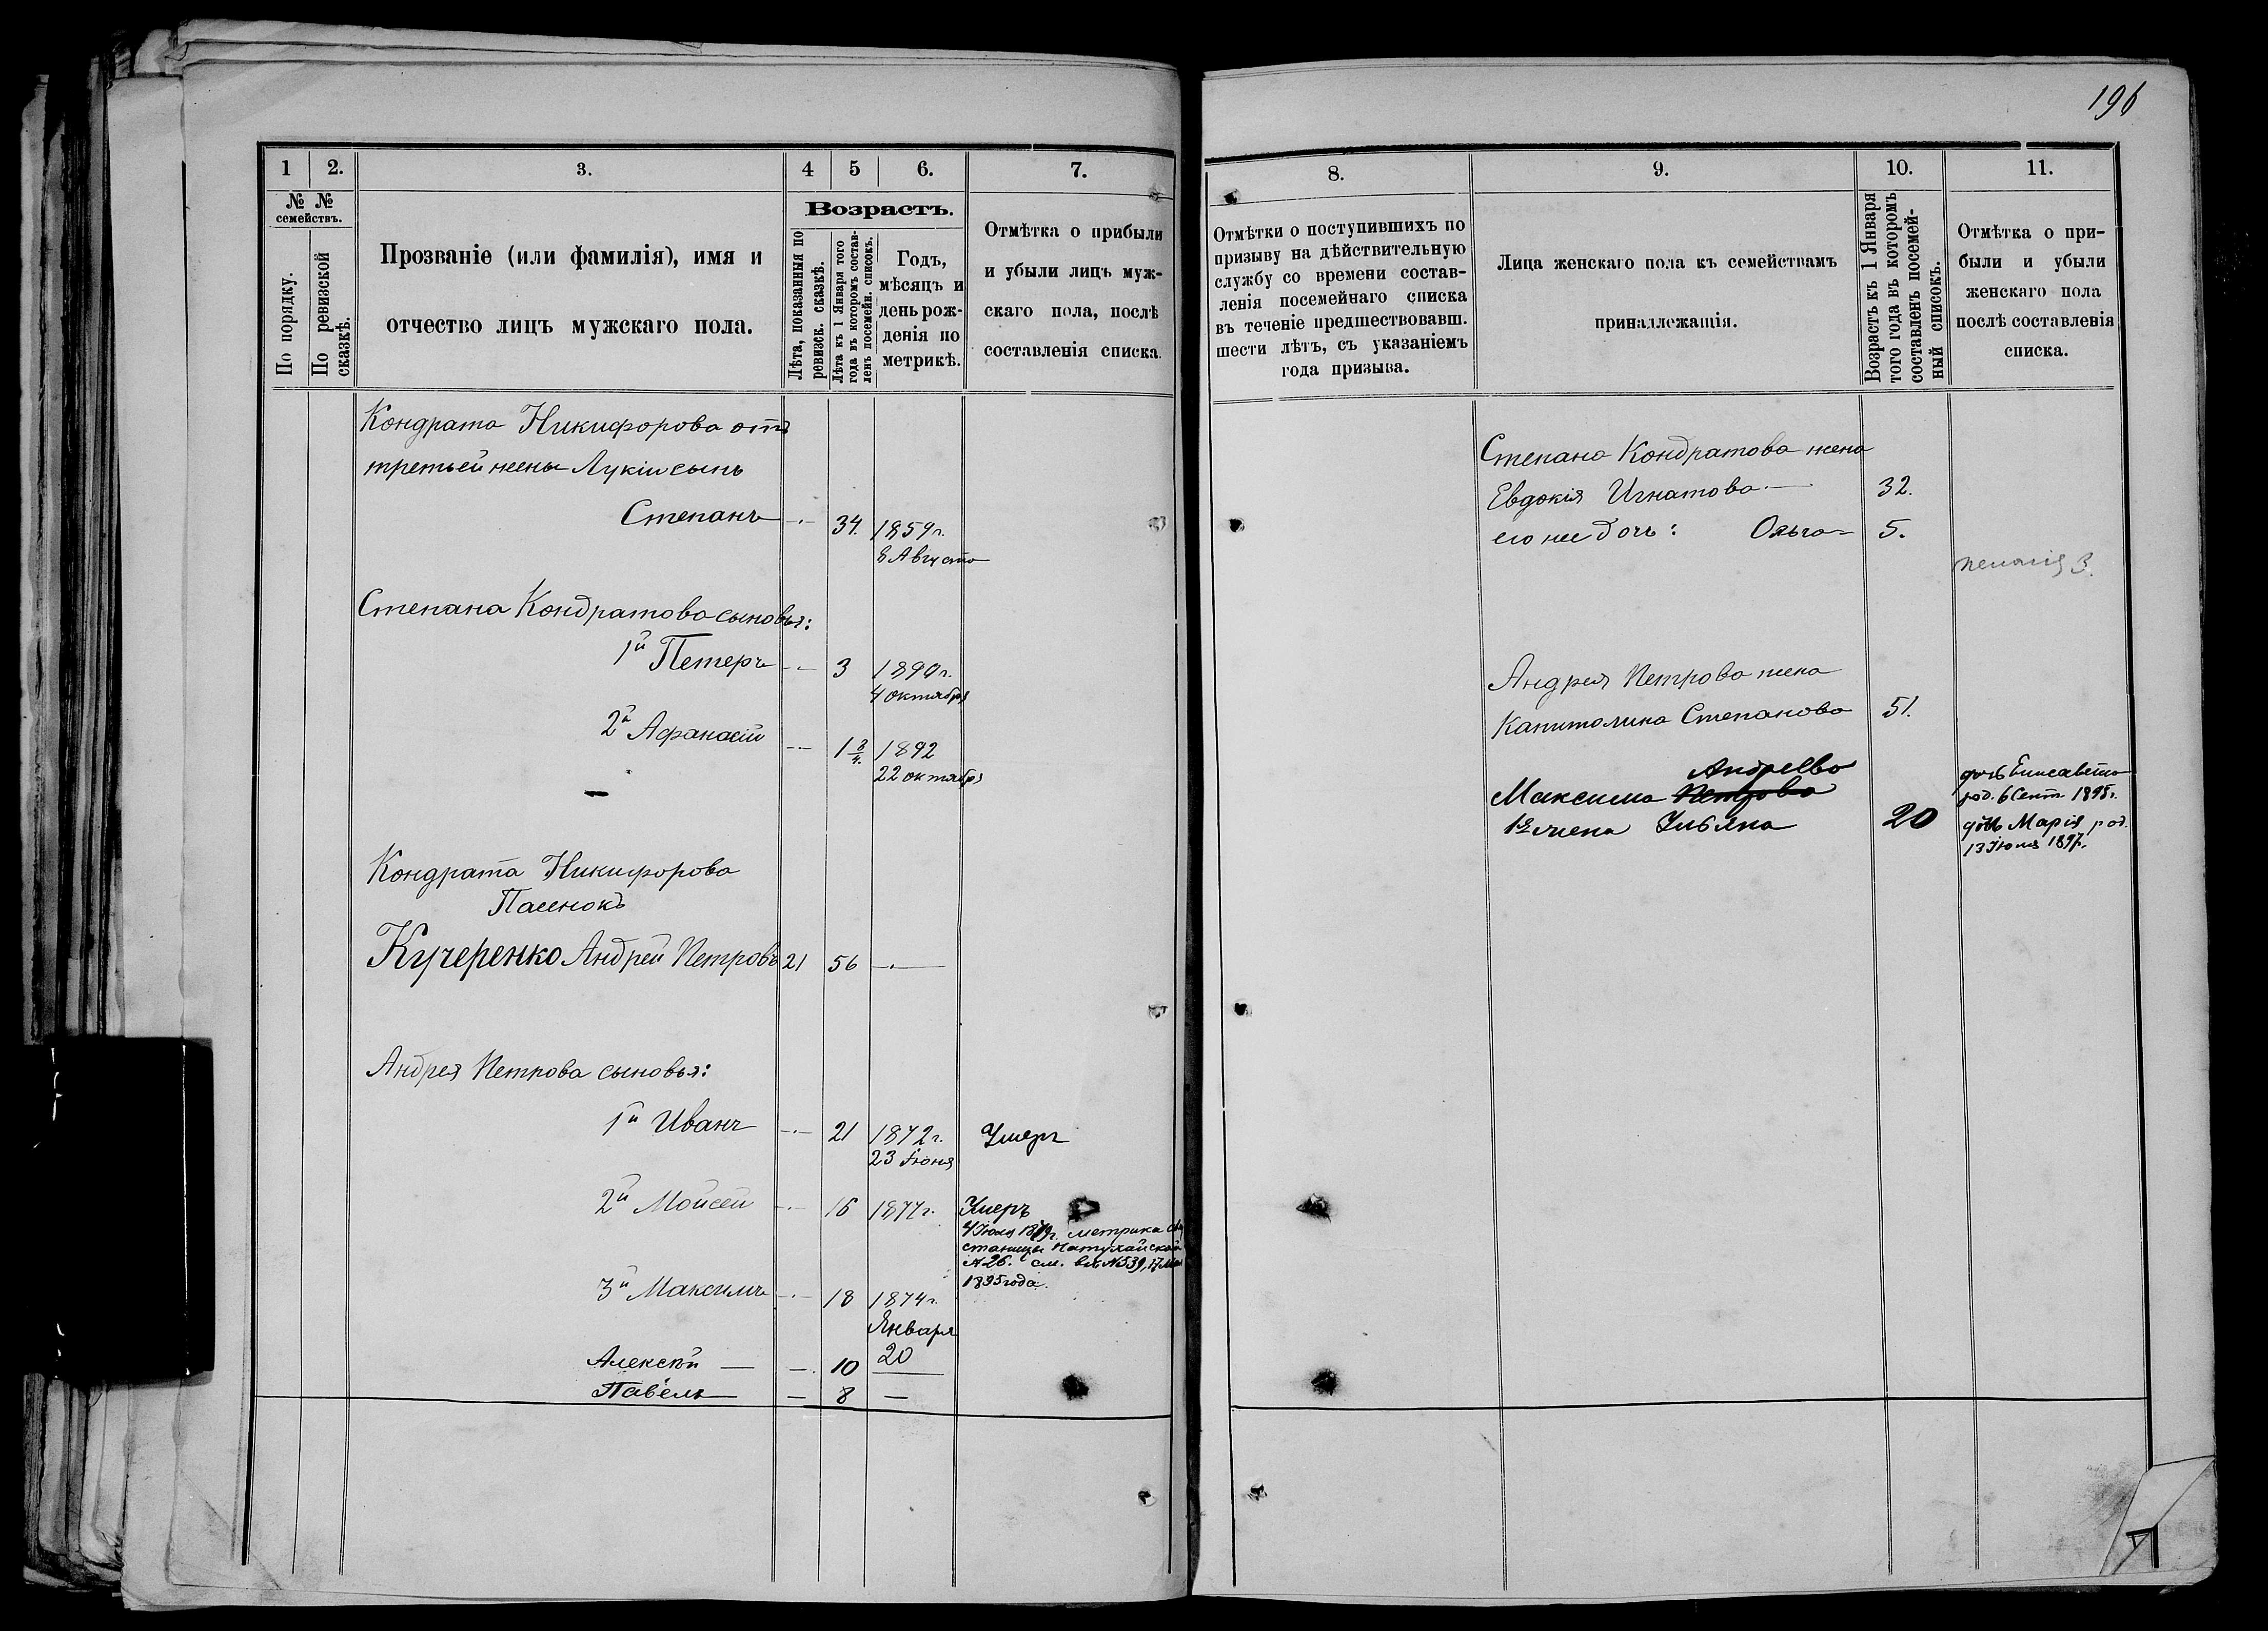 196
1 2. 3. 4 5 6. 7.
№ № семействъ.
По порядку.
По ревизской сказкѣ.
Прозваніе (или фамилія), имя и
отчество лицъ мужскаго пола.
Возрастъ.
Лѣта, показанныя по ревизск. сказкѣ.
Лѣта къ 1 Января того года въ которомъ составленъ посемейн. списокъ.
Годъ,
мѣсяцъ и
день рож-
денія по
метрикѣ.
Отмѣтка о прибыли
и убыли лицъ муж-
скаго пола, послѣ
составленія списка.
Кондрата Никифорова отъ
третьей жены Лукіи сынъ
Степанъ — 34. 1859 г.
8 Августа
Степана Кондратова сыновья:
1й Петеръ — 3 1890 г.
4 октября
2й Афанасій — 1 3/4. 1892
22 октября
Кондрата Никифорова
Пасенокъ
Кучеренко Андрей Петровъ 21 56 —
Андрея Петрова сыновья:
1й Иванъ — 21 1872 г. Умеръ
23 Іюня
2й Мойсей — 16 1877 г. Умеръ
4 Іюля 1879 г. метрика
станицы Натухайской
№ 26. см. вх. № 539, 17
1895 года.
3й Максимъ — 18 1874 г.
Января
20
Алексѣй — — 10 —
Павелъ — 8 —
8. 9. 10. 11.
Отмѣтки о поступившихъ по
призыву на дѣйствительную
службу со времени состав-
ленія посемейнаго списка
въ теченіе предшествовавш.
шести лѣтъ, съ указаніемъ
года призыва.
Лица женскаго пола къ семействамъ
принадлежащія.
Возрастъ къ 1 Января
того года въ которомъ
составленъ посемей-
ный списокъ.
Отмѣтка о при-
были и убыли
женскаго пола
послѣ составленія
списка.
Степана Кондратова жена
Евдокія Игнатова — 32.
его же дочь: Ольга — 5.
Андрея Петрова жена
Капитолина Степанова 51.
Андреева
Максима Петрова
1я жена Ульяна 20
дочь Елисавета
род. 6 Сент. 1895 г.
дочь Марія род.
13 Іюля 1897 г.